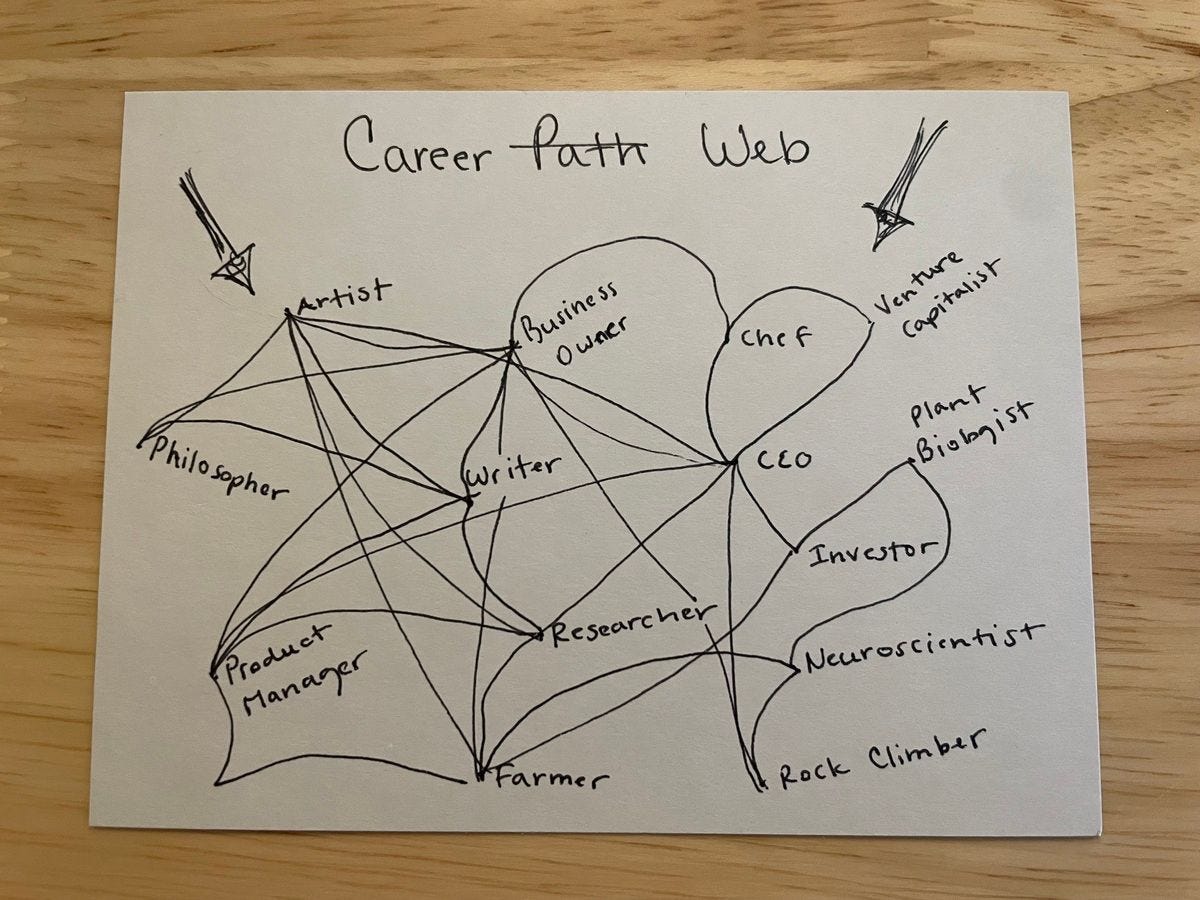 Career Path Web
Artist
Business
Owner
Chef
Venture
Capitalist
Philosopher
Writer
CEO
Plant
Biologist
Investor
Researcher
Product
Manager
Neuroscientist
Farmer
Rock Climber